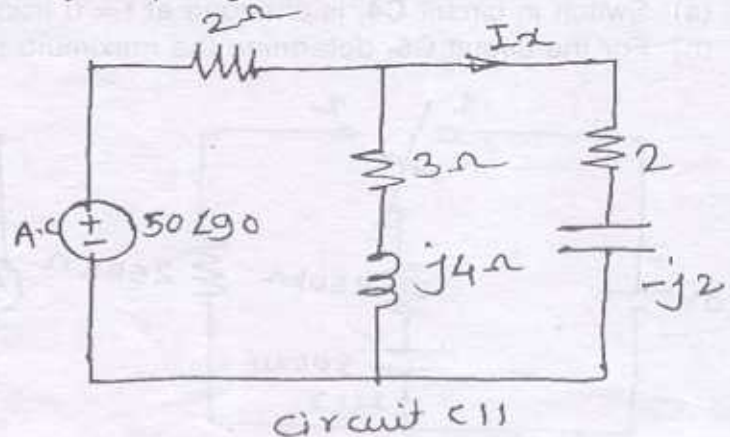 2Ω
Ix
3Ω
2
A.C
+
-
50∠90
j4Ω
-j2
circuit C11